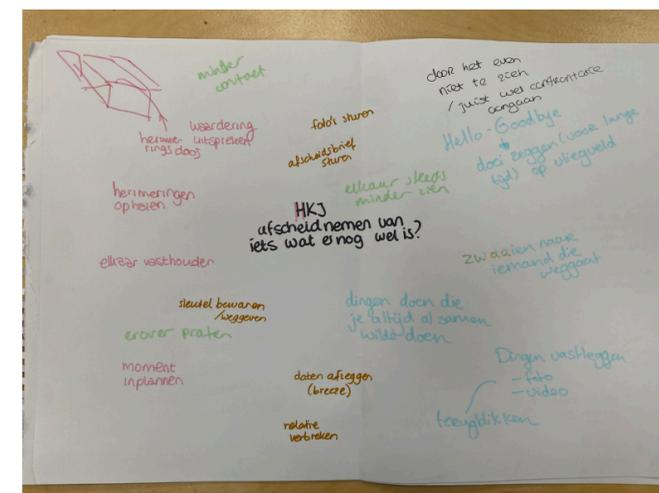 minder
contact
door het even
niet te zien
/ juist wel confrontatie
aangaan
waardering
uitspreken
herinne-
rings doos
foto's sturen
afscheidsbrief
sturen
Hello-Goodbye
doei zeggen (voor lange
tijd) op vliegveld
herinneringen
ophalen
elkaar steeds
minder zien
HKJ
afscheid nemen van
iets wat er nog wel is?
elkaar vasthouden
zwaaien naar
iemand die
weggaat
sleutel bewaren
/weggeven
erover praten
dingen doen die
je altijd al samen
wilde doen
moment
inplannen
daten afzeggen
(breeze)
Dingen vastleggen
- foto
- video
terugblikken
relatie
verbreken